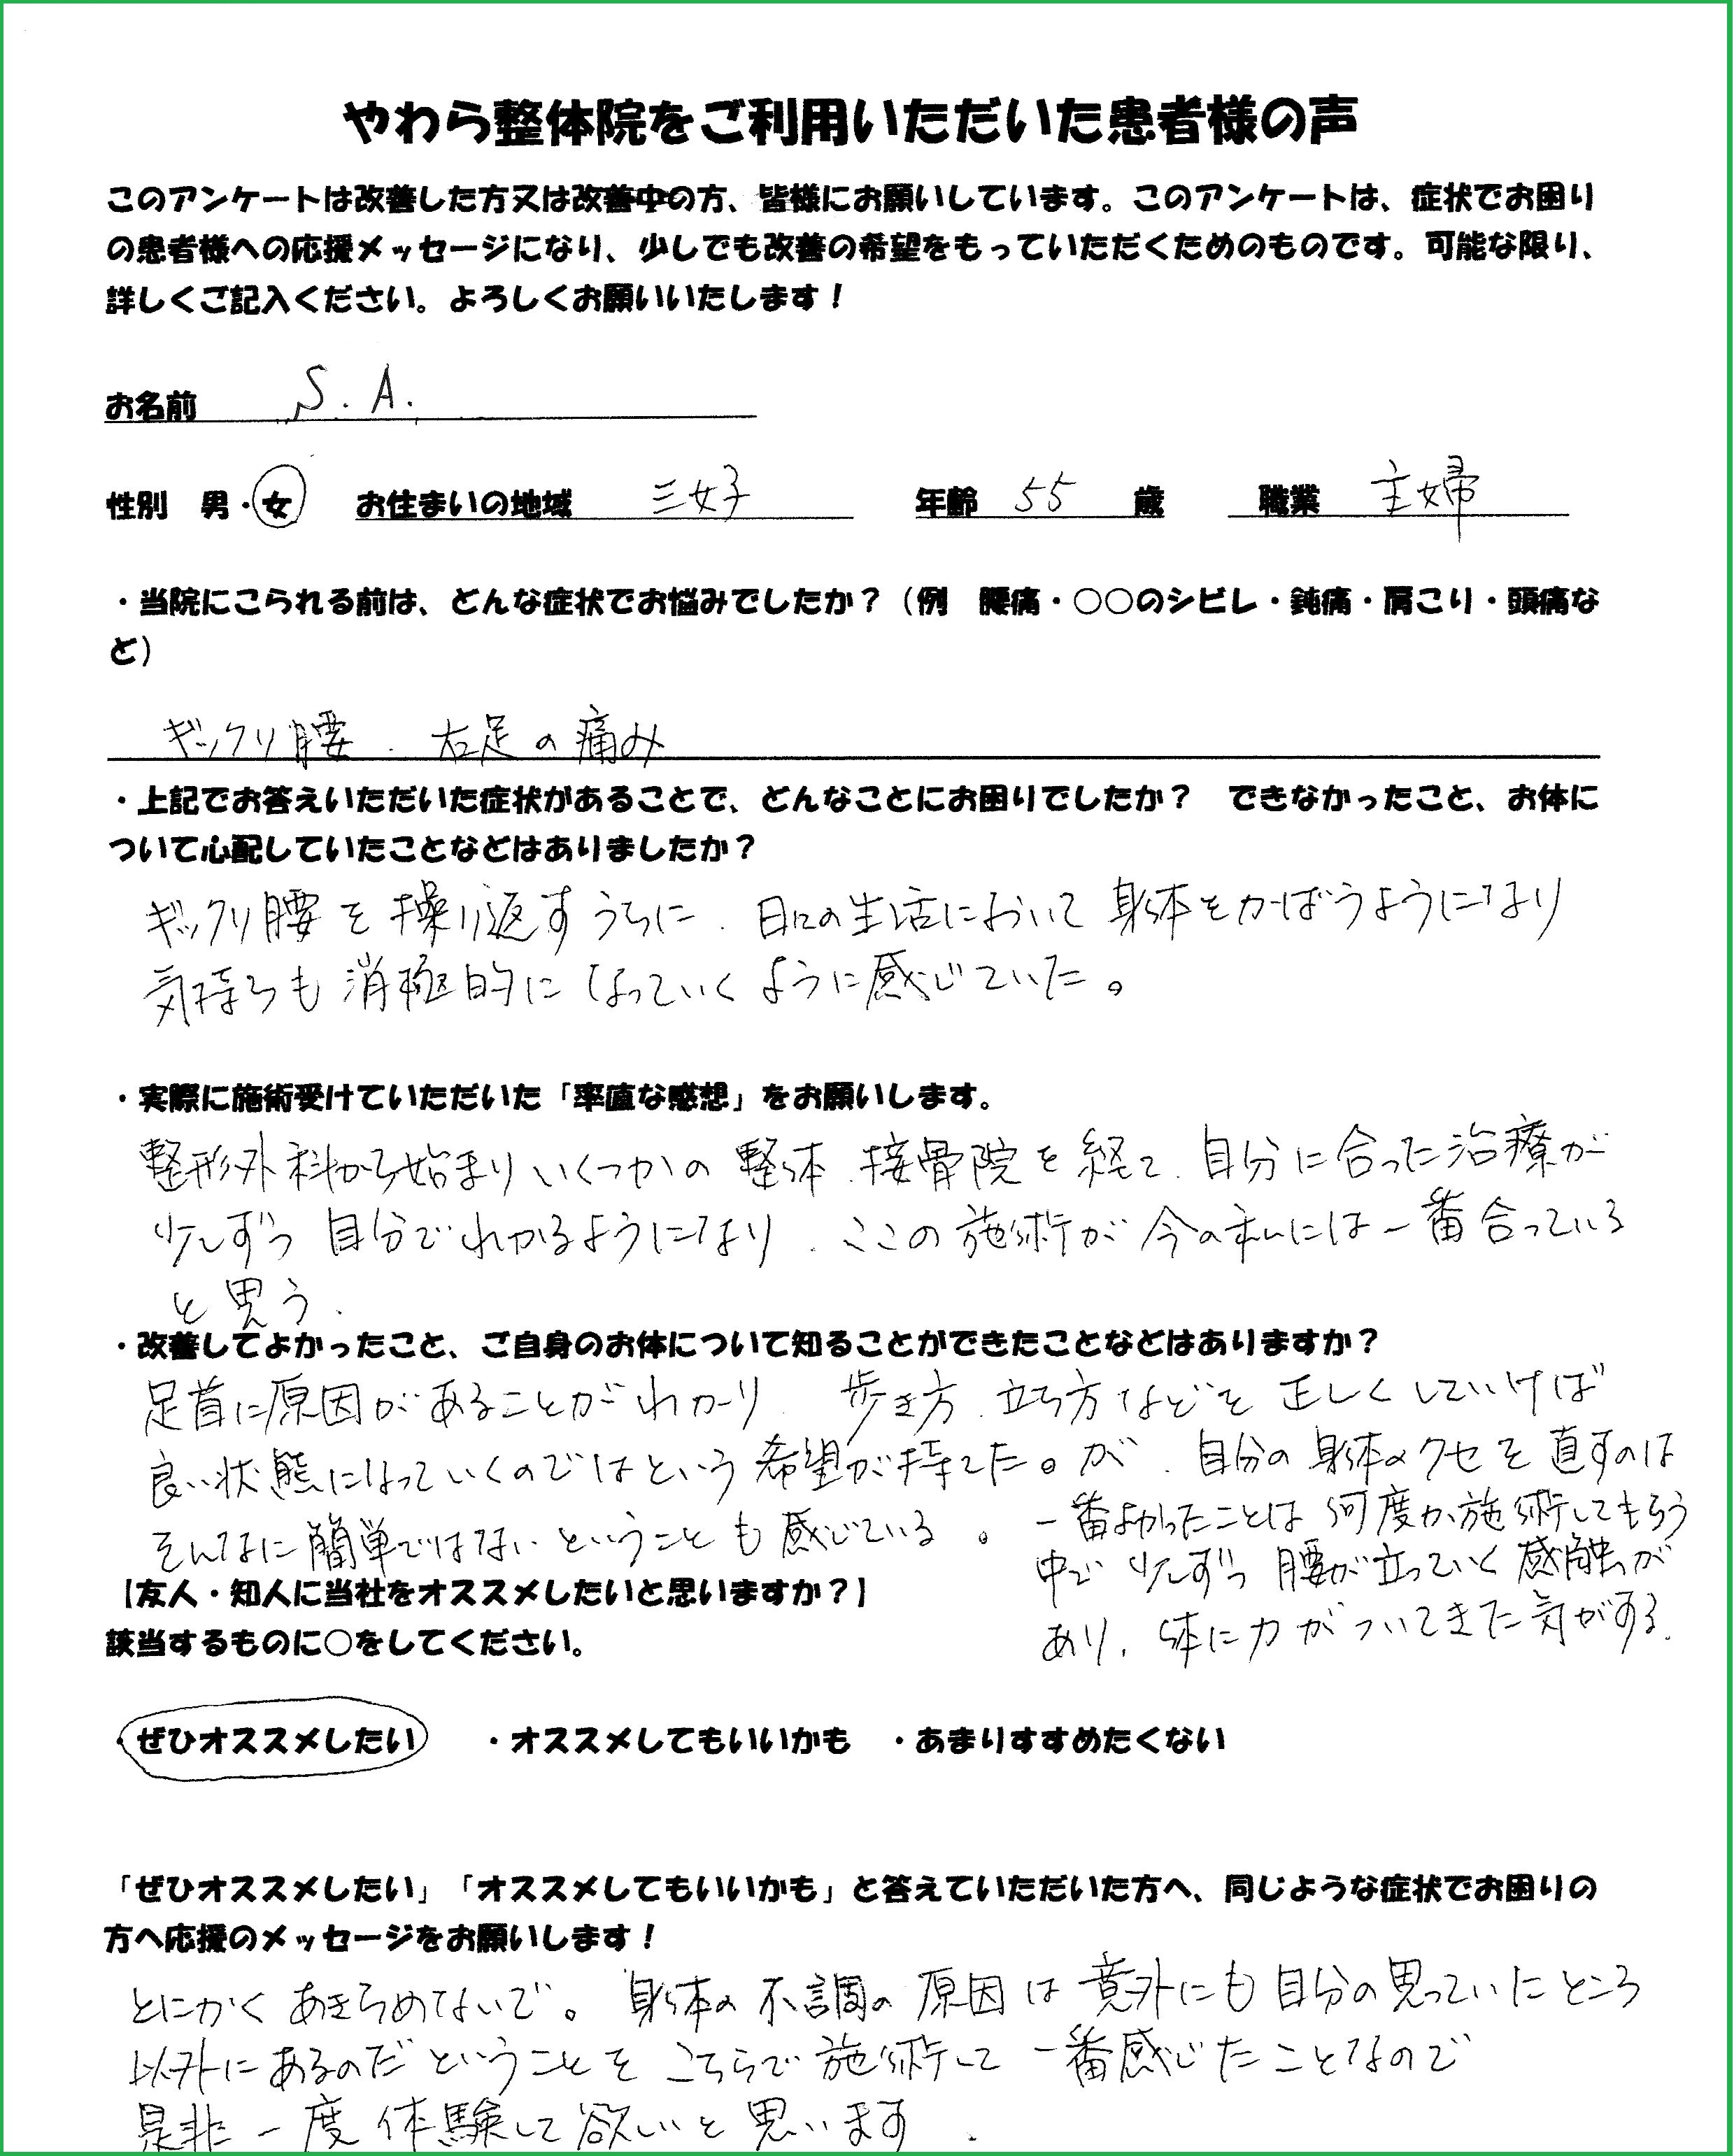 やわら整体院をご利用いただいた患者様の声
このアンケートは改善した方又は改善中の方、皆様にお願いしています。このアンケートは、症状でお困り
の患者様への応援メッセージになり、少しでも改善の希望をもっていただくためのものです。可能な限り、
詳しくご記入ください。よろしくお願いいたします！
お名前 S.A.
性別 男・女 お住まいの地域 三好 年齢 55 歳 職業 主婦
・当院にこられる前は、どんな症状でお悩みでしたか？（例 腰痛・○○のシビレ・鈍痛・肩こり・頭痛な
ど）
ギックリ腰、右足の痛み
・上記でお答えいただいた症状があることで、どんなことにお困りでしたか？ できなかったこと、お体に
ついて心配していたことなどはありましたか？
ギックリ腰を繰り返すうちに、日々の生活において身体をかばうようになり
気持ちも消極的になっていくように感じていた。
・実際に施術受けていただいた「率直な感想」をお願いします。
整形外科から始まりいくつかの整体、接骨院を経て、自分に合った治療が
少しずつ自分でわかるようになり、ここの施術が今の私には一番合っている
と思う。
・改善してよかったこと、ご自身のお体について知ることができたことなどはありますか？
足首に原因があることがわかり、歩き方、立ち方などを正しくしていけば
良い状態になっていくのではという希望が持てた。が、自分の身体のクセを直すのは
そんなに簡単ではないということも感じている。
一番よかったことは何度か施術してもらう
中で少しずつ腰が立っていく感触が
あり、体に力がついてきた気がする。
【友人・知人に当社をオススメしたいと思いますか？】
該当するものに○をしてください。
・ぜひオススメしたい ・オススメしてもいいかも ・あまりすすめたくない
「ぜひオススメしたい」「オススメしてもいいかも」と答えていただいた方へ、同じような症状でお困りの
方へ応援のメッセージをお願いします！
とにかくあきらめないで。身体の不調の原因は意外にも自分の思っていたところ
以外にあるのだということをこちらで施術して一番感じたことなので
是非一度体験して欲しいと思います。